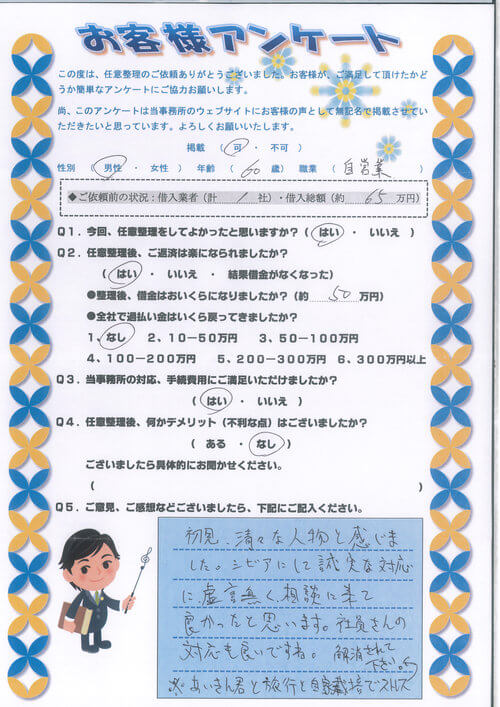 お客様アンケート
この度は、任意整理のご依頼ありがとうございました。お客様が、ご満足して頂けたかど
うか簡単なアンケートにご協力お願いします。
尚、このアンケートは当事務所のウェブサイトにお客様の声として無記名で掲載させてい
ただきたいと思っています。よろしくお願いいたします。
掲載 ( 可 ・ 不可 )
性別 ( 男性 ・ 女性 ) 年齢 ( 60 歳) 職業 ( 自営業 )
◆ご依頼前の状況:借入業者(計 1 社)・借入総額(約 65 万円)
Q1.今回、任意整理をしてよかったと思いますか?( はい ・ いいえ )
Q2.任意整理後、ご返済は楽になられましたか?
( はい ・ いいえ ・ 結果借金がなくなった)
●整理後、借金はおいくらになりましたか?(約 50 万円)
●全社で過払い金はいくら戻ってきましたか?
1、なし 2、10-50万円 3、50-100万円
4、100-200万円 5、200-300万円 6、300万円以上
Q3.当事務所の対応、手続費用にご満足いただけましたか?
( はい ・ いいえ )
Q4.任意整理後、何かデメリット(不利な点)はございましたか?
( ある ・ なし )
ございましたら具体的にお聞かせください。
( )
Q5.ご意見、ご感想などございましたら、下記にご記入ください。
初見、清々な人物と感じま
した。シビアにして誠実な対応
に虚言無く、相談に来て
良かったと思います。社員さんの
対応も良いですね。 解消されて
下さい。
※あいきん君と旅行と自家栽培でストレス